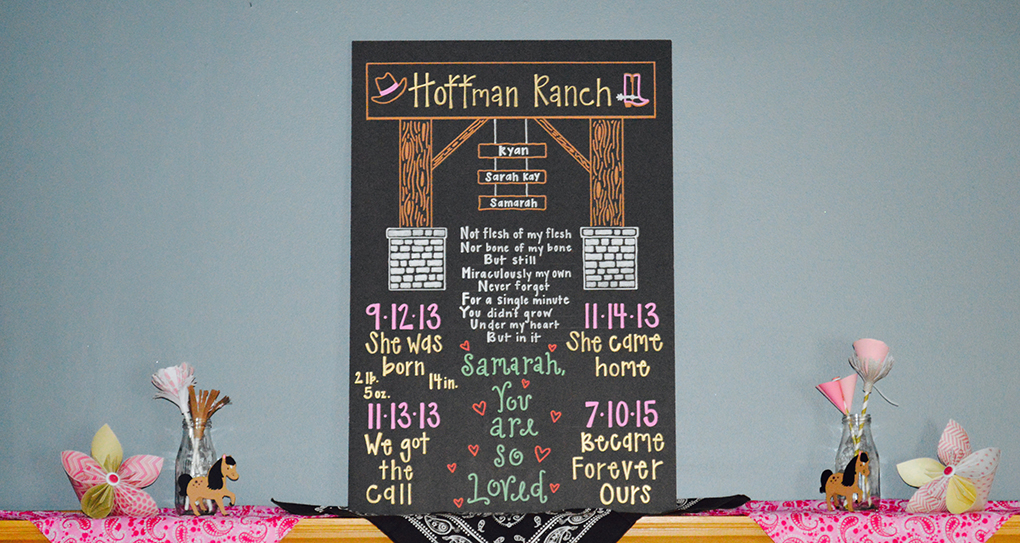 Hoffman Ranch
Ryan
Sarah Kay
Samarah
Not flesh of my flesh
Nor bone of my bone
But still
Miraculously my own
Never forget
For a single minute
You didn't grow
Under my heart
But in it
9·12·13
She was
born
2 lb.
5 oz.
14 in.
11·13·13
We got
the
call
Samarah,
You
are
so
Loved
11·14·13
She came
home
7·10·15
Became
Forever
Ours